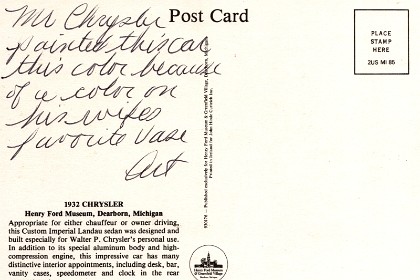 Mr Chrysler
painted this car
this color because
of a color on
his wifes
favorite Vase
Art
Post Card
PLACE
STAMP
HERE
2US MI 85
1932 CHRYSLER
Henry Ford Museum, Dearborn, Michigan
Appropriate for either chauffeur or owner driving,
this Custom Imperial Landau sedan was designed and
built especially for Walter P. Chrysler's personal use.
In addition to its special aluminum body and high-
compression engine, this impressive car has many
distinctive interior appointments, including desk, bar,
vanity cases, speedometer and clock in the rear
Henry Ford Museum
& Greenfield Village